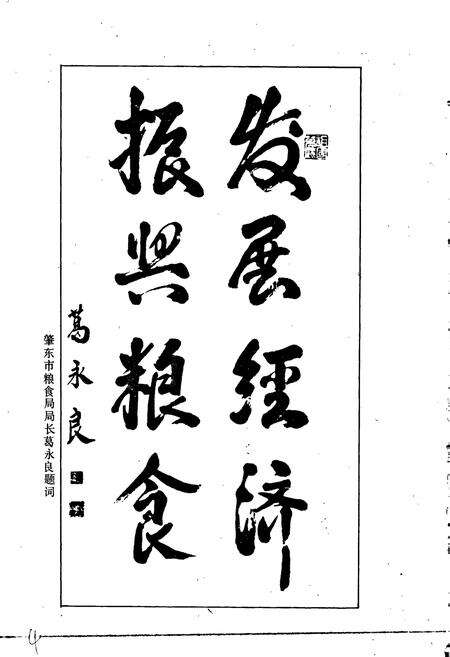 发展經济
振兴粮食
葛永良
肇东市粮食局局长葛永良题词